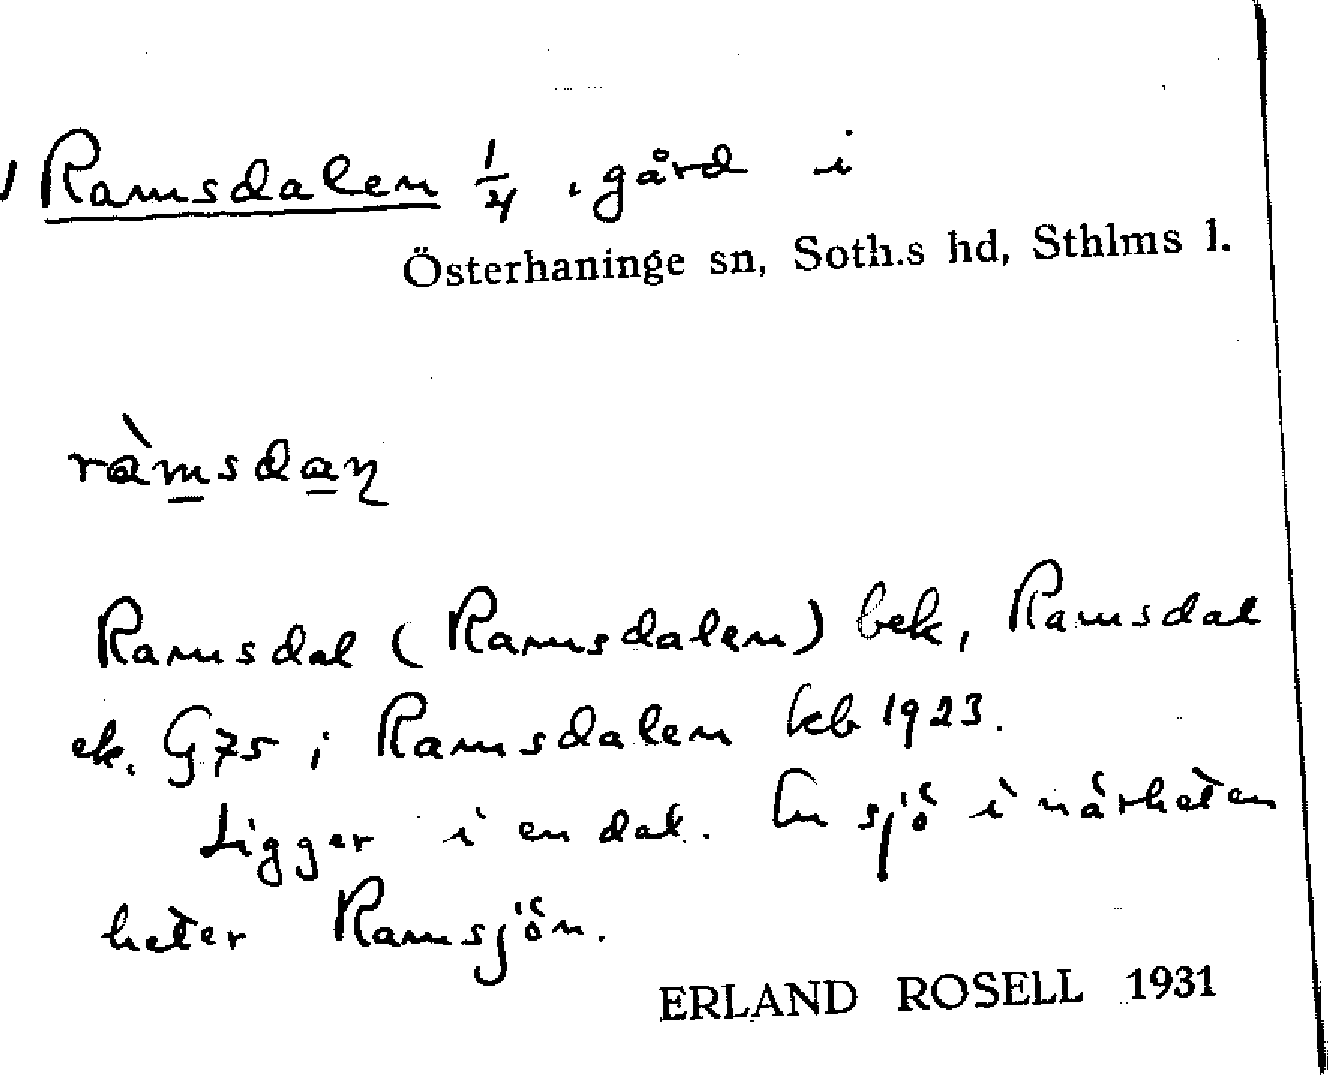 Ramsdalen 1/4 . gård i
Österhaninge sn, Soth.s hd, Sthlms l.
ràmsdaɳ
Ramsdal (Ramsdalen) bek, Ramsdal
ek. G75 ; Ramsdalen kb 1923.
Ligger i en dal. En sjö i närheten
heter Ramsjön.
ERLAND ROSELL 1931